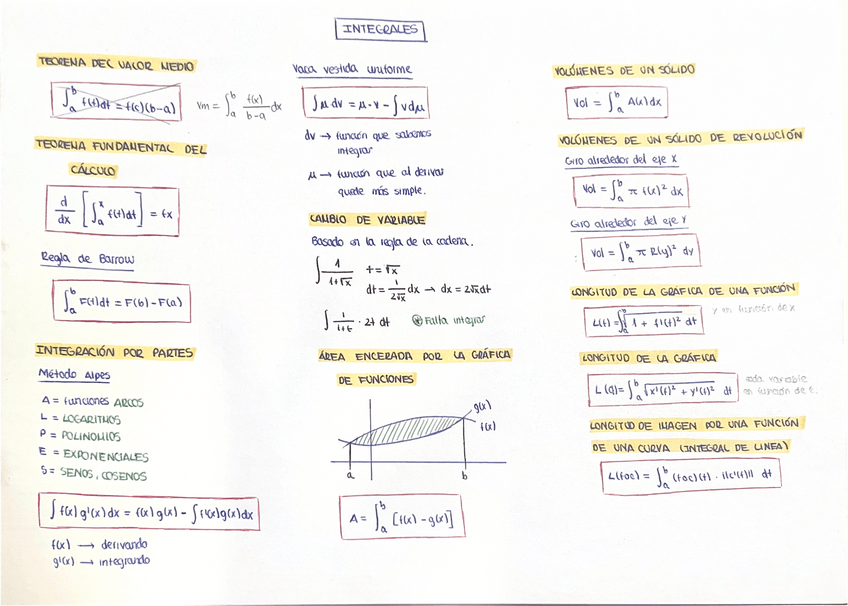 INTEGRALES
TEOREMA DEL VALOR MEDIO
∫ₐᵇ f(t)dt = f(c)(b-a)
Vm = ∫ₐᵇ f(x)/(b-a) dx
TEOREMA FUNDAMENTAL DEL
CÁLCULO
d/dx [∫ₐˣ f(t)dt] = fx
Regla de Barrow
∫ₐᵇ F(t)dt = F(b) - F(a)
INTEGRACIÓN POR PARTES
Método Alpes
A = funciones ARCOS
L = LOGARITMOS
P = POLINOMIOS
E = EXPONENCIALES
S = SENOS, COSENOS
∫ f(x) g'(x) dx = f(x) g(x) - ∫ f'(x)g(x)dx
f(x) → derivando
g'(x) → integrando
Vaca vestida uniforme
∫ μ dv = μ · v - ∫ v dμ
dv → función que sabemos
integrar
μ → función que al derivar
quede más simple.
CAMBIO DE VARIABLE
Basado en la regla de la cadena.
∫ 1/(1+√x) t = √x
dt = 1/(2√x) dx → dx = 2√x dt
∫ 1/(1+t) · 2t dt * Falta integrar
ÁREA ENCERADA POR LA GRÁFICA
DE FUNCIONES
g(x)
f(x)
a b
A = ∫ₐᵇ [f(x) - g(x)]
VOLÚMENES DE UN SÓLIDO
Vol = ∫ₐᵇ A(x) dx
VOLÚMENES DE UN SÓLIDO DE REVOLUCIÓN
Giro alrededor del eje X
Vol = ∫ₐᵇ π f(x)² dx
Giro alrededor del eje Y
Vol = ∫ₐᵇ π R(y)² dy
LONGITUD DE LA GRÁFICA DE UNA FUNCIÓN
L(f) = ∫ₐᵇ √(1 + f'(t)²) dt
y en función de x
LONGITUD DE LA GRÁFICA
L(g) = ∫ₐᵇ √(x'(t)² + y'(t)²) dt
cada variable
en función de t.
LONGITUD DE IMAGEN POR UNA FUNCIÓN
DE UNA CURVA (INTEGRAL DE LINEA)
L(foc) = ∫ₐᵇ (foc)(t) · ||c'(t)|| dt